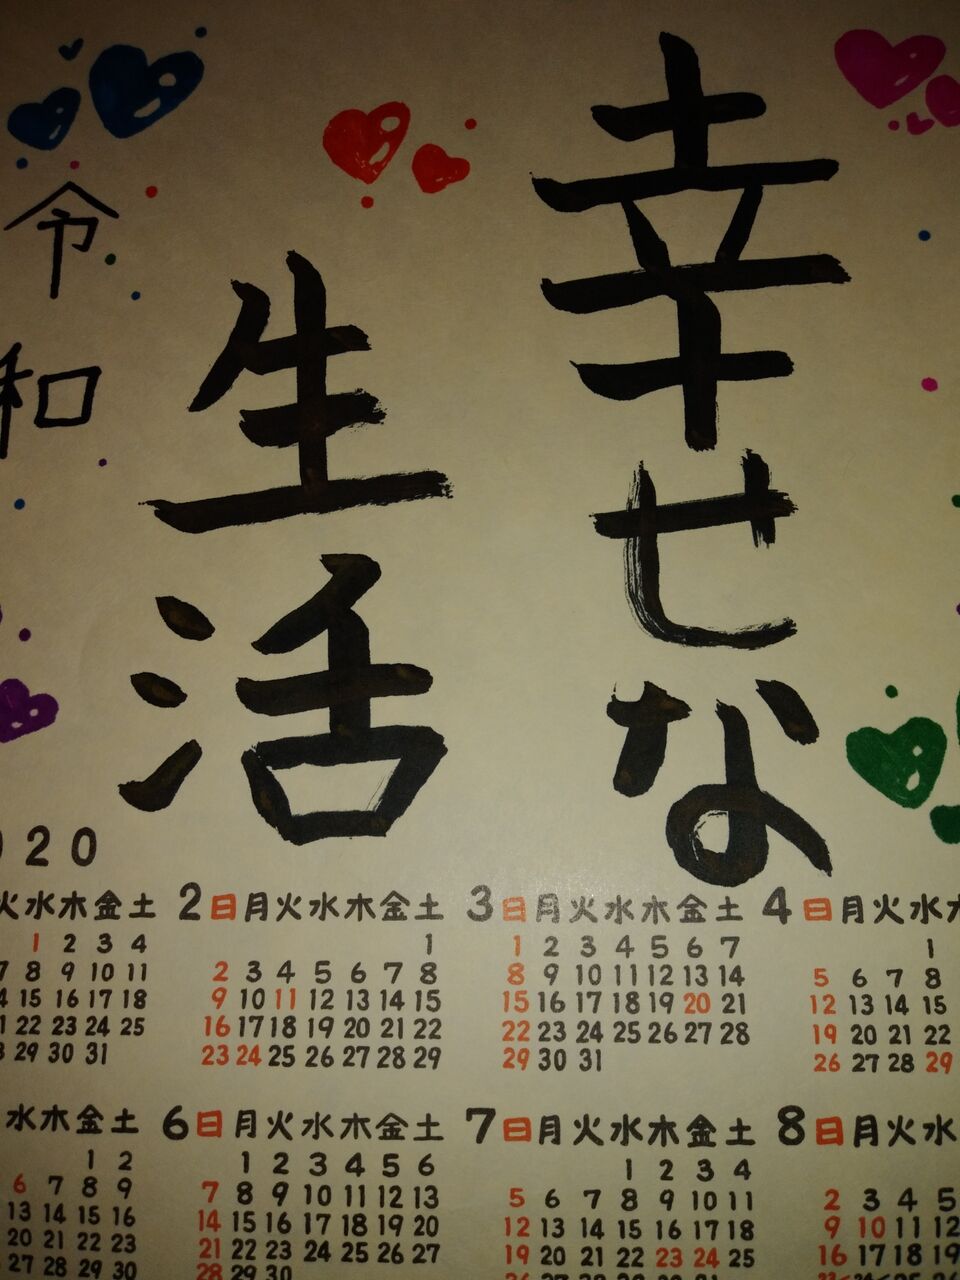 幸せな
生活
令和
20
水木金土
1 2 3 4
8 9 10 11
15 16 17 18
22 23 24 25
29 30 31
2 日月火水木金土
1
2 3 4 5 6 7 8
9 10 11 12 13 14 15
16 17 18 19 20 21 22
23 24 25 26 27 28 29
3 日月火水木金土
1 2 3 4 5 6 7
8 9 10 11 12 13 14
15 16 17 18 19 20 21
22 23 24 25 26 27 28
29 30 31
4 日月火水
1
5 6 7 8
12 13 14 15
19 20 21 22
26 27 28 29
水木金土
1 2
6 7 8 9
13 14 15 16
20 21 22 23
27 28 29 30
6 日月火水木金土
1 2 3 4 5 6
7 8 9 10 11 12 13
14 15 16 17 18 19 20
21 22 23 24 25 26 27
28 29 30
7 日月火水木金土
1 2 3 4
5 6 7 8 9 10 11
12 13 14 15 16 17 18
19 20 21 22 23 24 25
8 日月火水
2 3 4 5
9 10 11 12
16 17 18 19